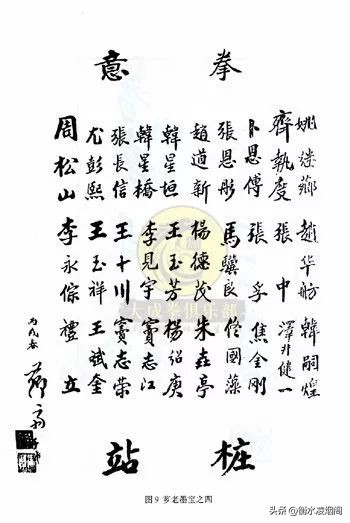 意拳
姚继薌 趙华舫 韓嗣煌
齊執度 張中 澤井健一
卜恩傅 張孚 焦金剛
張恩彤 馬驥良 佟國藻
趙道新 楊德茂 朱垚亭
韓星垣 王玉芳 楊绍庚
韓星橋 李見宇 竇志江
張長信 王十川 竇志荣
尤彭熙 王玉祥 王斌奎
周松山 李永倧 禮立
丙戌春
站桩
大成拳俱乐部
图9 芗老墨宝之四
头条 @衡水凌烟阁